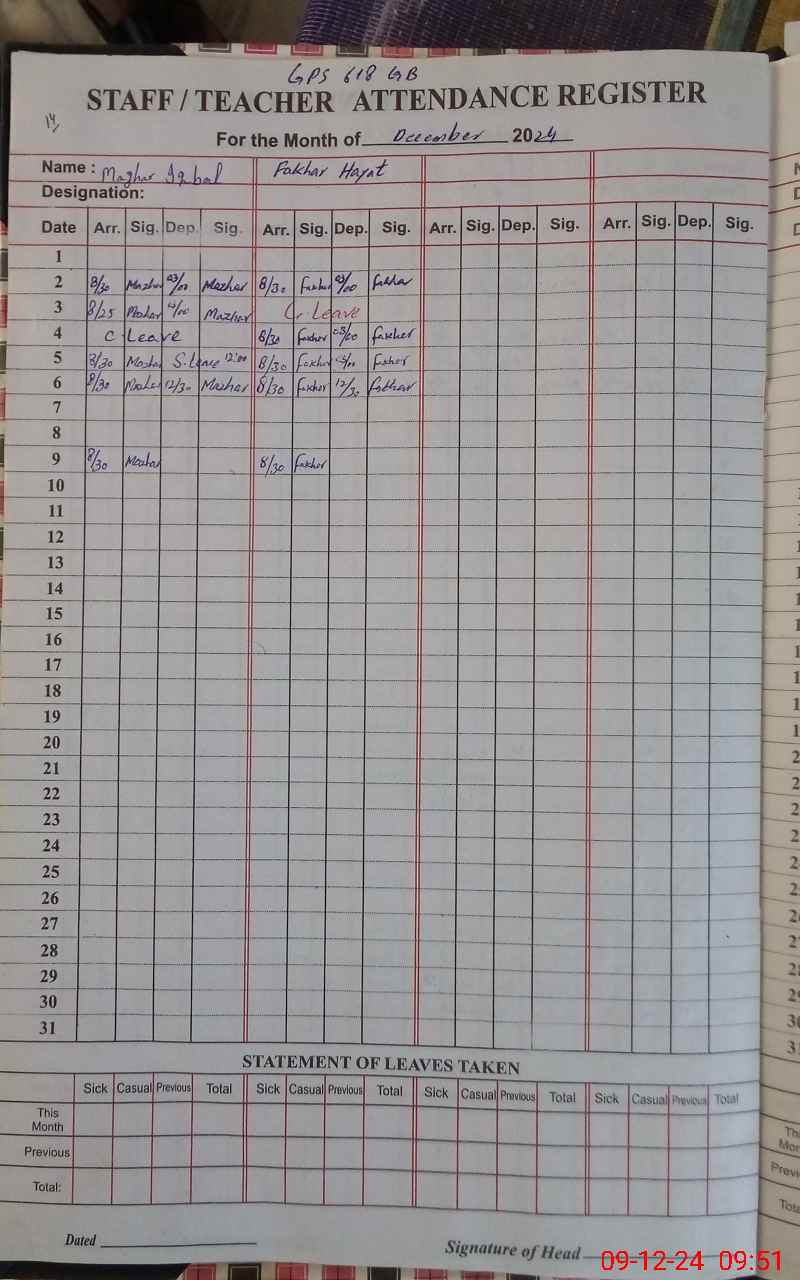 GPS 618 GB
STAFF / TEACHER ATTENDANCE REGISTER
14/
For the Month of December 2024
Name : Mazhar Iqbal Fakhar Hayat
Designation:
Date Arr. Sig. Dep. Sig. Arr. Sig. Dep. Sig. Arr. Sig. Dep. Sig. Arr. Sig. Dep. Sig.
1
2 8/30 Mazhar 03/00 Mazhar 8/30 Fakhar 03/00 Fakhar
3 8/25 Mazhar Mazhar C. Leave
4 C Leave 8/30 Fakhar 03/00 Fakhar
5 8/30 Mazhar S. Leave 12:00 8/30 Fakhar Fakhar
6 8/30 Mazhar 12/30 Mazhar 8/30 Fakhar 12/30 Fakhar
7
8
9 8/30 Mazhar 8/30 Fakhar
10
11
12
13
14
15
16
17
18
19
20
21
22
23
24
25
26
27
28
29
30
31
STATEMENT OF LEAVES TAKEN
Sick Casual Previous Total Sick Casual Previous Total Sick Casual Previous Total Sick Casual Previous Total
This
Month
Previous
Total:
Dated
Signature of Head
09-12-24 09:51